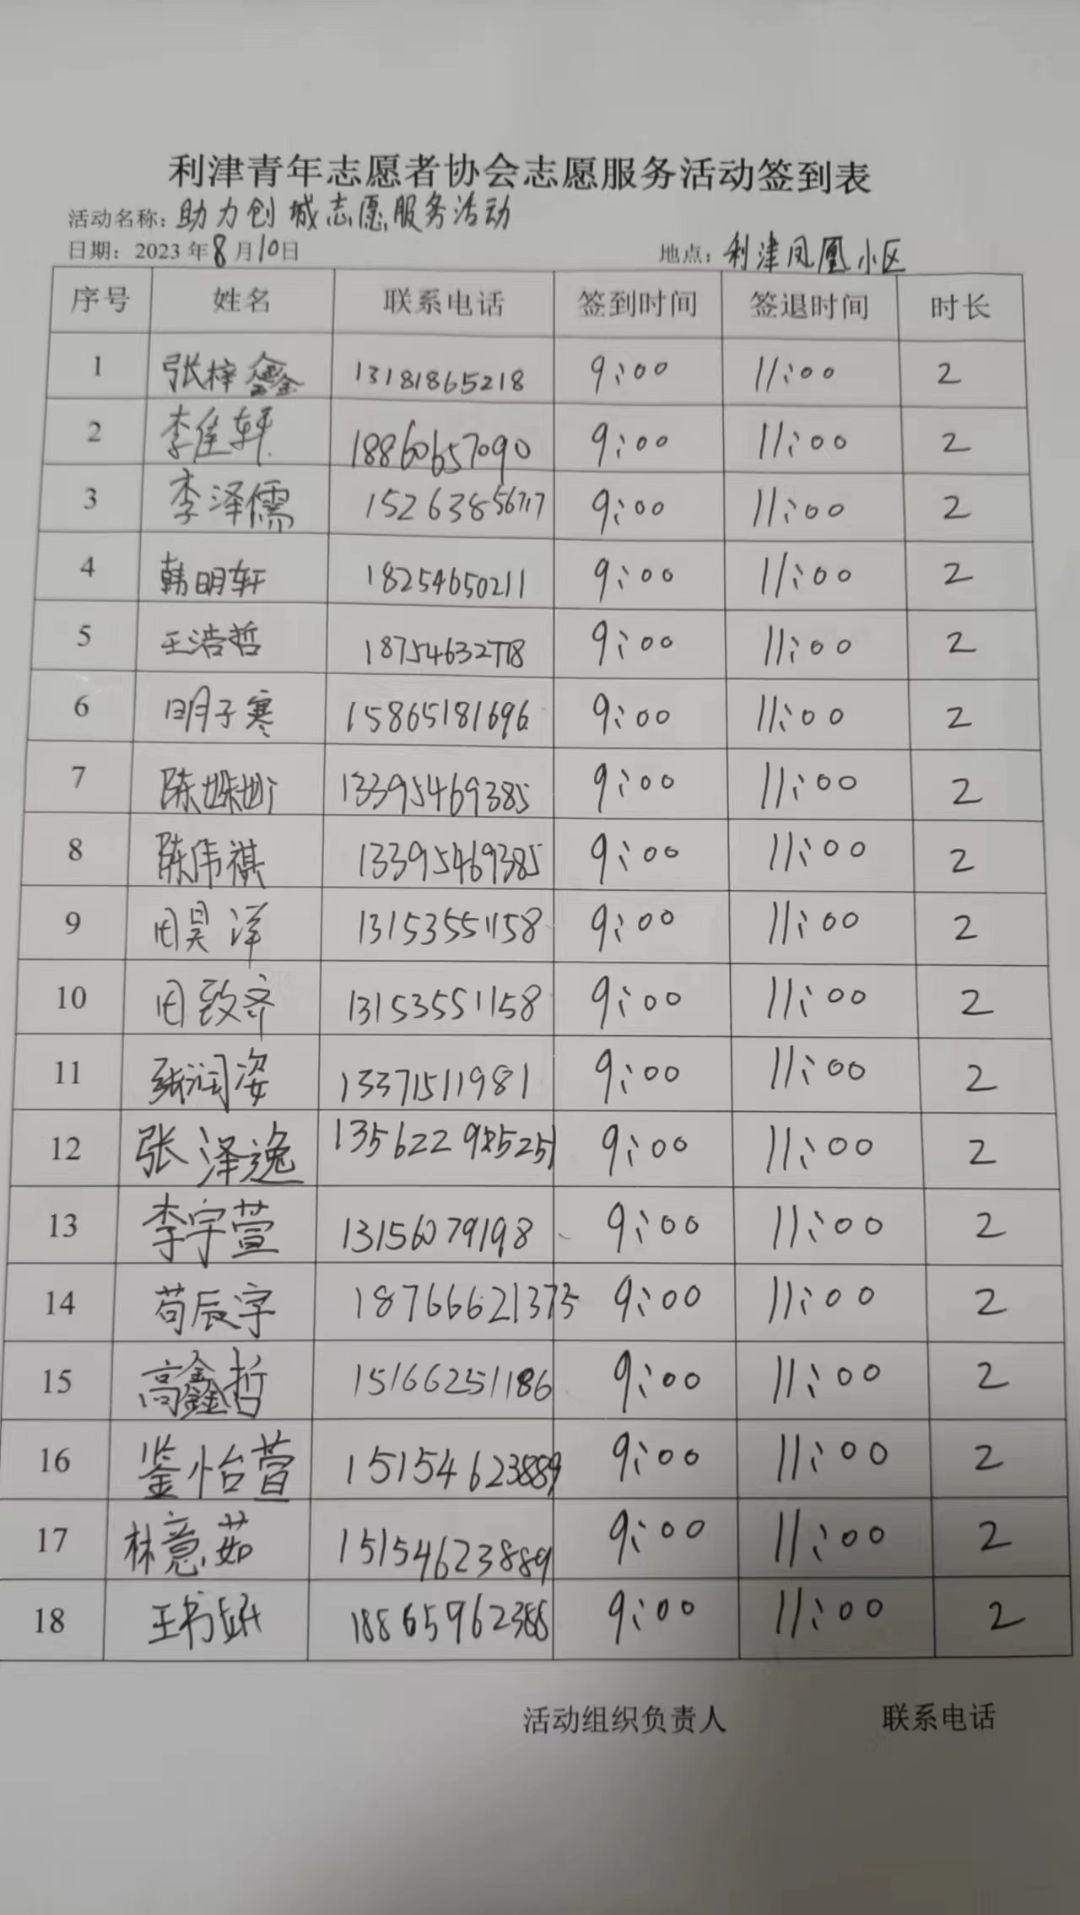 利津青年志愿者协会志愿服务活动签到表
活动名称：助力创城志愿服务活动
日期：2023年8月10日 地点：利津凤凰小区
序号 姓名 联系电话 签到时间 签退时间 时长
1 张梓鑫 13181865218 9:00 11:00 2
2 李佳轩 18860657090 9:00 11:00 2
3 李泽儒 15263856717 9:00 11:00 2
4 韩明轩 18254650211 9:00 11:00 2
5 王浩哲 18754632778 9:00 11:00 2
6 明子寒 15865181696 9:00 11:00 2
7 陈姝 13395469385 9:00 11:00 2
8 陈伟祺 13395469385 9:00 11:00 2
9 田昊洋 13153551158 9:00 11:00 2
10 田致齐 13153551158 9:00 11:00 2
11 张润姿 13371511981 9:00 11:00 2
12 张泽逸 9:00 11:00 2
13 李宇萱 13156079198 9:00 11:00 2
14 苟辰宇 18766621375 9:00 11:00 2
15 高鑫哲 15166251186 9:00 11:00 2
16 鉴怡萱 15154623889 9:00 11:00 2
17 林意茹 15154623889 9:00 11:00 2
18 王书 18865962388 9:00 11:00 2
活动组织负责人 联系电话